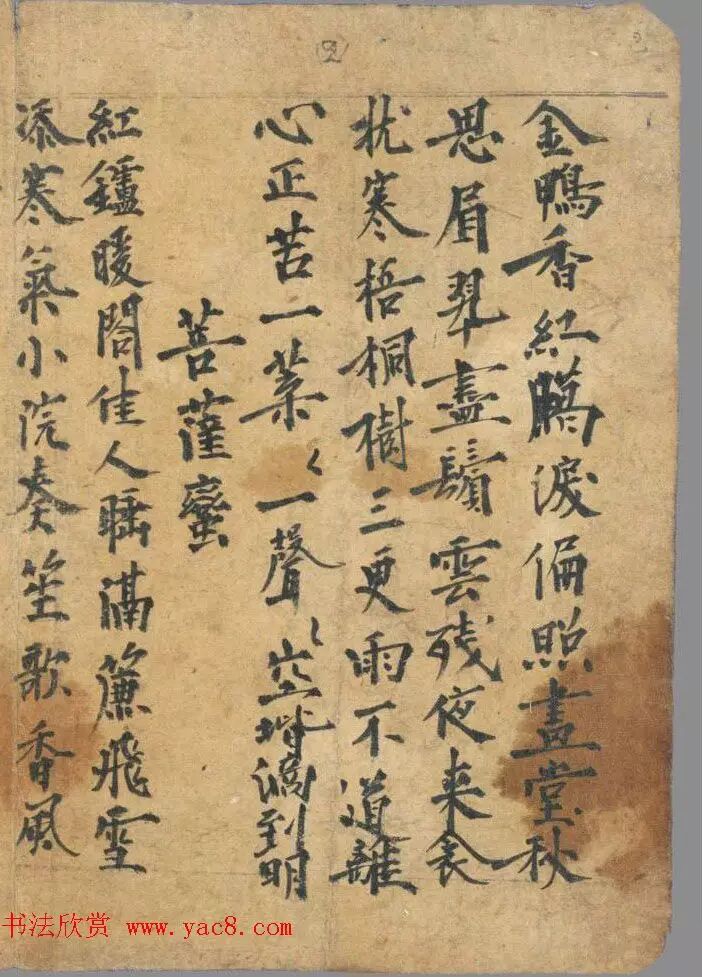 ②
金鴨香紅臈淚偏照畫堂秋
思眉翠盡鬢雲殘夜来衾
枕寒梧桐樹三更雨不道離
心正苦一葉〻一聲〻空堦滴到明
菩薩蠻
紅鑪暖閣佳人睡隔簾飛雪
添寒氣小院奏笙歌香風
书法欣赏 www.yac8.com